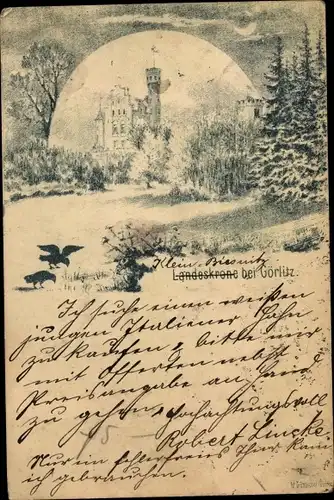 Klein-Biesnitz
Landeskrone bei Görlitz.
Ich suche einen weißen
jungen Italiener Hahn
zu kaufen, bitte mir
mit Offerten nebst
Preisangabe an Hand
zu gehen, Hochachtungsvoll
Robert Lincke.
Nur im fehlerfreies Thar kann
ich gebrauchen.